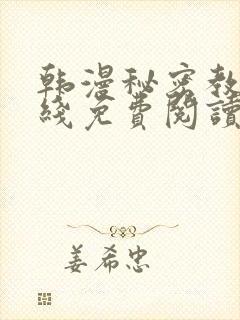 韩漫秘密教
线免费阅读
姜希忠